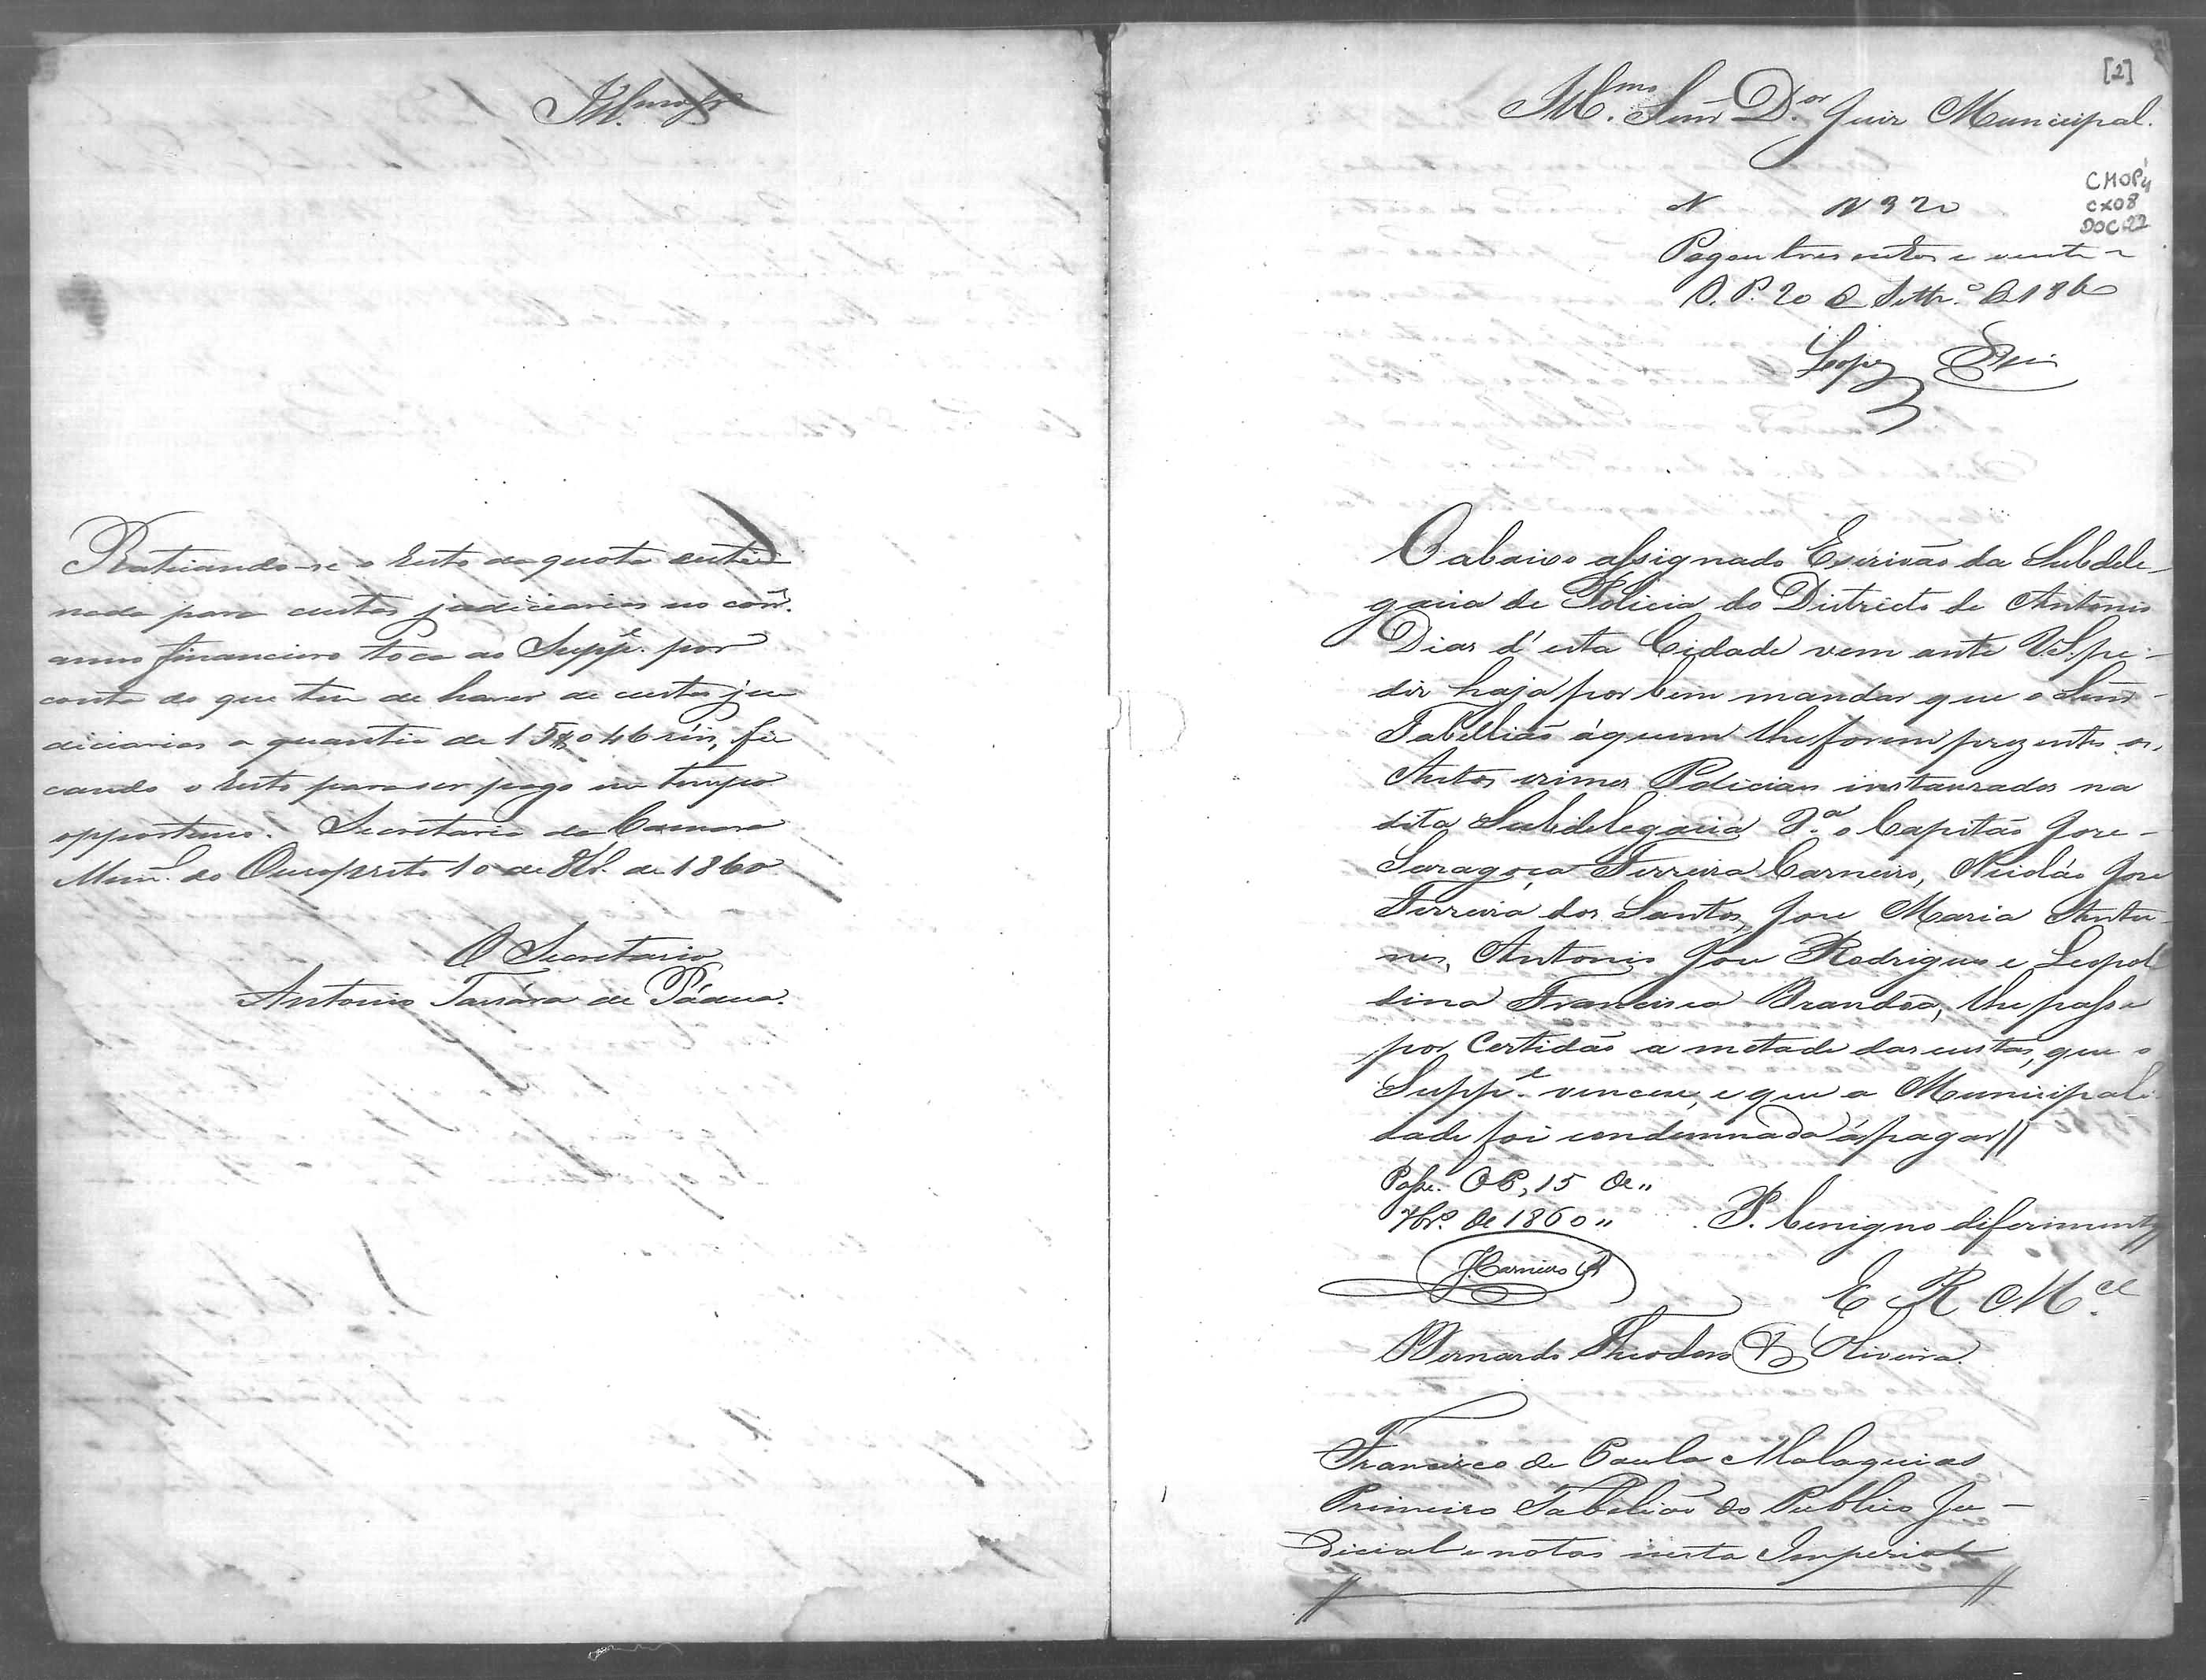 Illmo Sr
Rateiando-se o resto da quota desti-
nada para custas judiciarias no corr.
anno financeiro toca ao Suppe. por
conta do que tem de haver de custas ju
diciarias a quantia de 15$046 réis, fi
cando o resto para ser pago em tempo
opportuno. Secretaria da Camara
Mun. do Ouro preto 10 de 8br. de 1860
O Secretario
Antonio Tassára de Pádua.
[2]
Illmo. Senr. Dor. Juiz Municipal.
CMOP
CX08
DOC 22
N N 320
Pagou tres centos e vinte rs
O. P. 20 de Settr.o de 1860
Lopes
O abaixo assignado Escrivão da Subdele-
gacia de Policia do Districto de Antonio
Dias d'esta Cidade vem ante V.S. pe-
dir haja por bem mandar que o Senr.
Tabellião áquem lhe forem prezentes os
Autos crimes Policiaes instaurados na
dita Subdelegacia Ja. o Capitão Jose
Saragoça Ferreira Carneiro, Nicoláo Jose
Ferreira dos Santos, Jose Maria Antu-
nes, Antonio Jose Rodrigues e Leopol
dina Francisca Brandôa, lhe passe
por Certidão a metade das custas, que o
Suppe. venceu, e que a Municipali-
dade foi condemnada á pagar//
Passe. OP, 15 de,,
7br.o de 1860,, P. benigno diferimento//
J. Carneiro
E R Mce.
Bernardo Theodoro de Oliveira.
Francisco de Paula Malaquias
Primeiro Tabelião do Publico Ju-
dicial e notas nesta Imperial